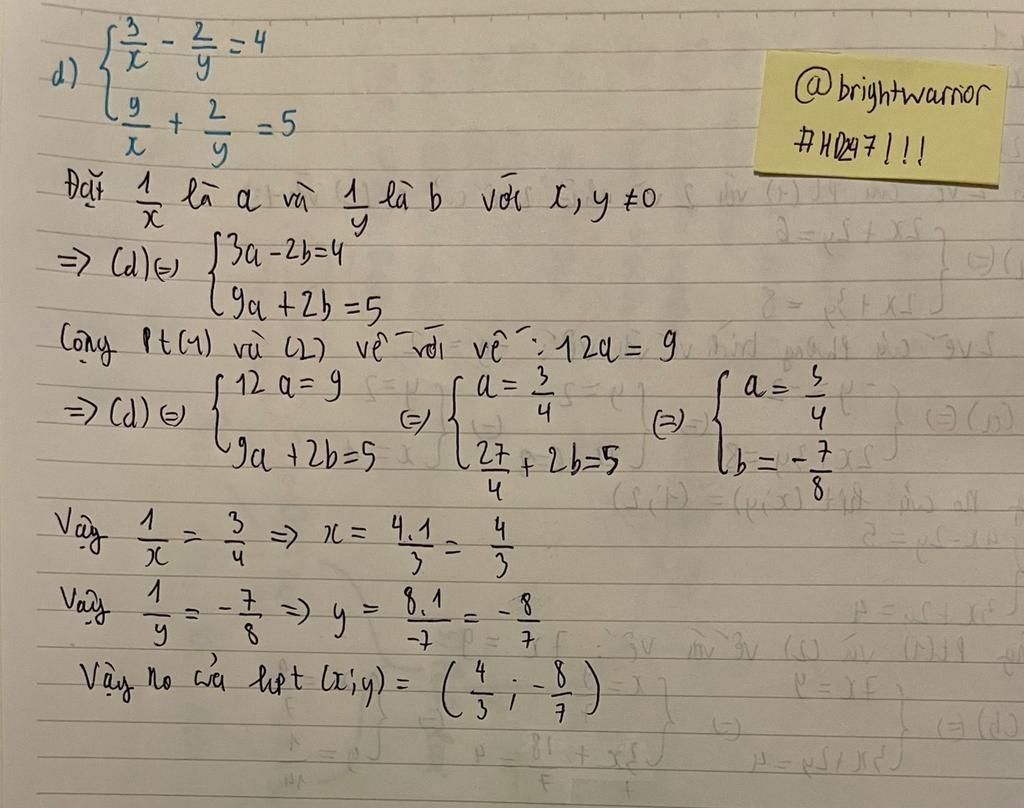 d) { 3/x - 2/y = 4
9/x + 2/y = 5
@brightwarrior
#HD247!!!
Đặt 1/x là a và 1/y là b với x, y ≠ 0
=> (d) (=) { 3a - 2b = 4
9a + 2b = 5
Cộng Pt(1) và (2) vế với vế: 12a = 9
=> (d) (=) { 12a = 9 (=) { a = 3/4 (=) { a = 3/4
9a + 2b = 5 27/4 + 2b = 5 b = -7/8
Vậy 1/x = 3/4 => x = 4.1/3 = 4/3
Vậy 1/y = -7/8 => y = 8.1/-7 = -8/7
Vậy no của hpt (x;y) = (4/3 ; -8/7)